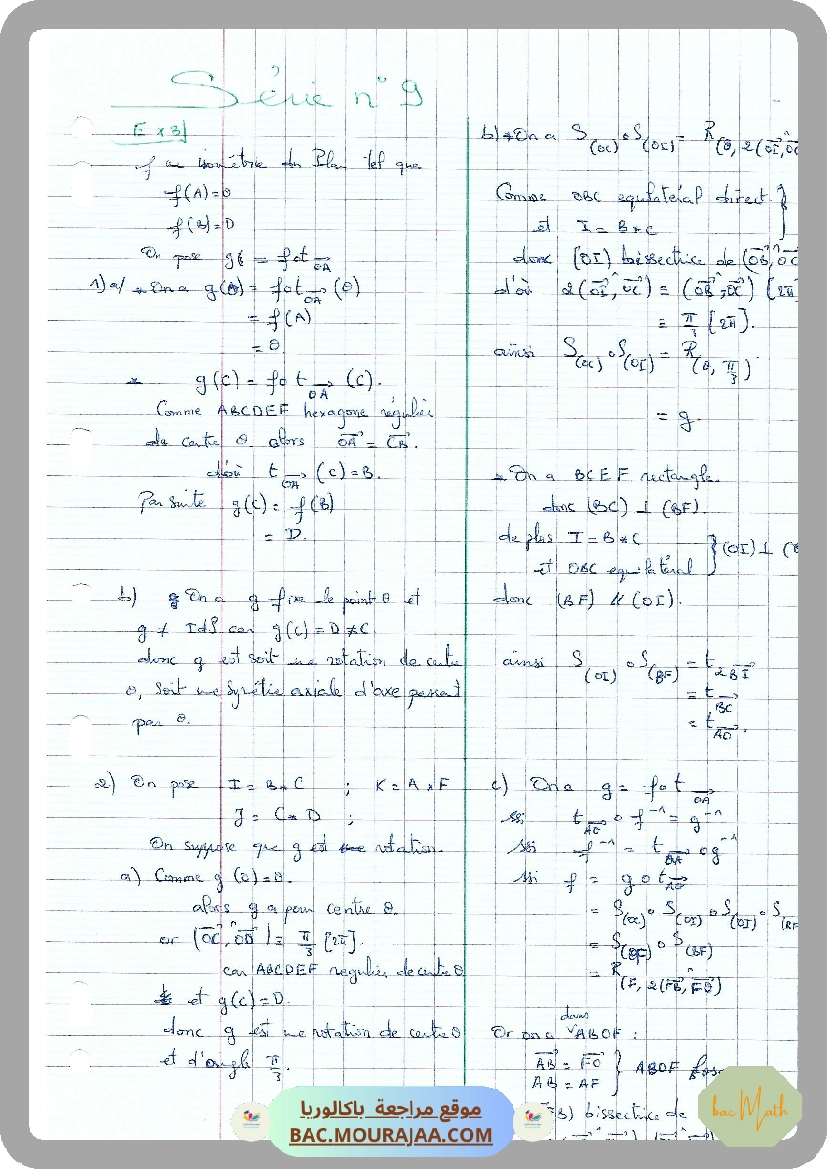 Série n° 9
Ex 3)
f isométrie du Plan tel que
f(A) = O
f(B) = D
On pose g = f o t_OA→
1) a) * On a g(O) = f o t_OA→ (O)
= f(A)
= O
* g(C) = f o t_OA→ (C).
Comme ABCDEF hexagone régulier
de centre O alors OA→ = CB→.
d'où t_OA→ (C) = B.
Par suite g(C) = f(B)
= D.
b) On a g fixe le point O et
g ≠ IdP car g(C) = D ≠ C
donc g est soit une rotation de centre
O, soit une symétrie axiale d'axe passant
par O.
2) On pose I = B * C ; K = A * F
J = C * D ;
On suppose que g est rotation.
a) Comme g(O) = O.
alors g a pour centre O.
or (OC→, OD→) ≡ π/3 [2π].
car ABCDEF regulier de centre O
et g(C) = D.
donc g est une rotation de centre O
et d'angle π/3.
b) * On a S_(OC) o S_(OI) = R_(O, 2(OI→, OC
Comme OBC equilatéral direct }
et I = B * C
donc [OI) bissectrice de (OB→, OC
d'où 2(OI→, OC→) ≡ (OB→, OC→) [2π
≡ π/3 [2π].
ainsi S_(OC) o S_(OI) = R_(O, π/3)
= g.
* On a BCEF rectangle.
donc (BC) ⊥ (BF).
de plus I = B * C
et OBC equilatéral } (OI) ⊥ (
donc (BF) // (OI).
ainsi S_(OI) o S_(BF) = t_2BI→
= t_BC→
= t_AO→.
c) On a g = f o t_OA→
ssi t_AO→ o f⁻¹ = g⁻¹
ssi f⁻¹ = t_OA→ o g⁻¹
ssi f = g o t_AO→
= S_(OC) o S_(OI) o S_(OI) o S_(BF
= S_(OF) o S_(BF)
= R_(F, 2(FB→, FO→)
Or on a dans ABOF :
AB→ = FO→
AB = AF } ABOF
bissectrice de
bac Math
موقع مراجعة باكالوريا
BAC.MOURAJAA.COM